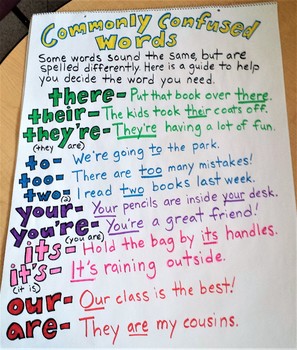 Commonly Confused
Words
Some words sound the same, but are
spelled differently. Here is a guide to help
you decide the word you need.
there- Put that book over there.
their- The kids took their coats off.
they're- They're having a lot of fun.
(they are)
to- We're going to the park.
too- There are too many mistakes!
two- I read two books last week.
(2)
your- Your pencils are inside your desk.
you're- You're a great friend!
(you are)
its- Hold the bag by its handles.
it's- It's raining outside.
(it is)
our- Our class is the best!
are- They are my cousins.